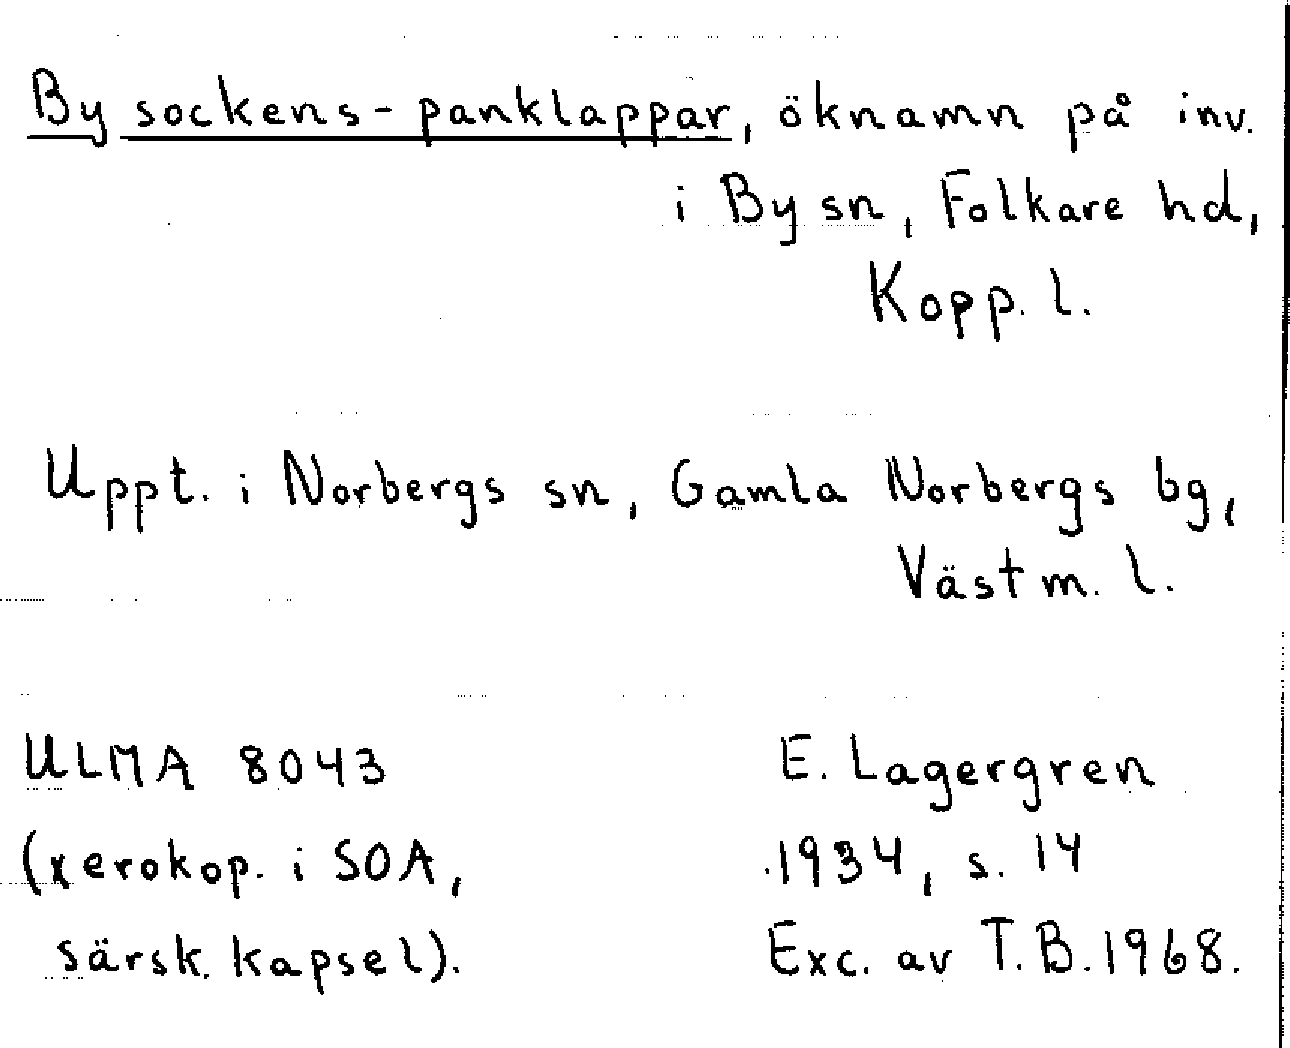 By sockens-panklappar, öknamn på inv.
i By sn, Folkare hd,
Kopp. l.
Uppt. i Norbergs sn, Gamla Norbergs bg,
Västm. l.
ULMA 8043 E. Lagergren
(xerokop. i SOA, 1934, s. 14
särsk. kapsel). Exc. av T.B. 1968.